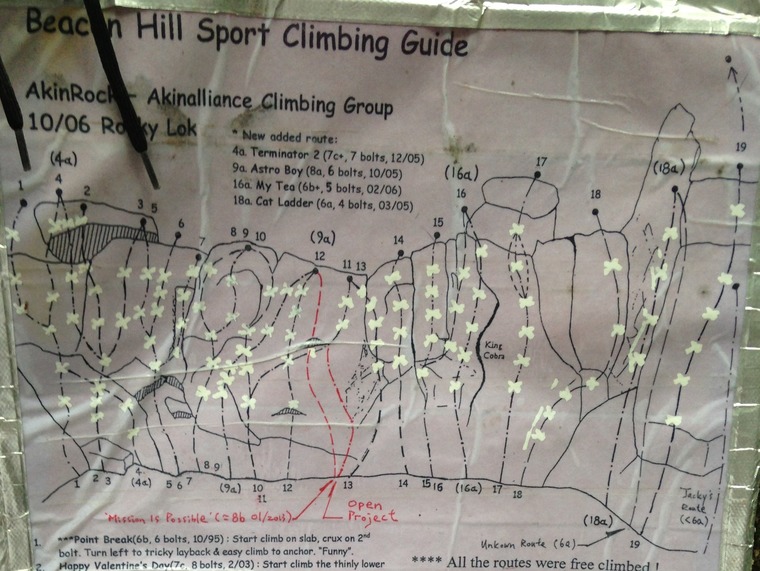 Beacon Hill Sport Climbing Guide
AkinRock - Akinalliance Climbing Group
10/06 Rocky Lok
* New added route:
4a. Terminator 2 (7c+, 7 bolts, 12/05)
9a. Astro Boy (8a, 6 bolts, 10/05)
16a. My Tea (6b+, 5 bolts, 02/06)
18a. Cat Ladder (6a, 4 bolts, 03/05)
(4a) (16a) 17 (18a) 19
1 4 2 3 5 6 7 8 9 10 (9a) 12 11 13 14 15 16 18
King
Cobra
1 2 3 4 (4a) 5 6 7 8 9 (9a) 10 11 12 13 14 15 16 (16a) 17 18 (18a) 19
Jacky's
Route
(<6a)
'Mission Is Possible' (≈8b 01/2013)
Open
Project
Unkown Route (6a)
1. ***Point Break(6b, 6 bolts, 10/95) : Start climb on slab, crux on 2nd
bolt. Turn left to tricky layback & easy climb to anchor. "Funny".
2. Happy Valentine's Day(7c, 8 bolts, 2/03) : Start climb the thinly lower
**** All the routes were free climbed !